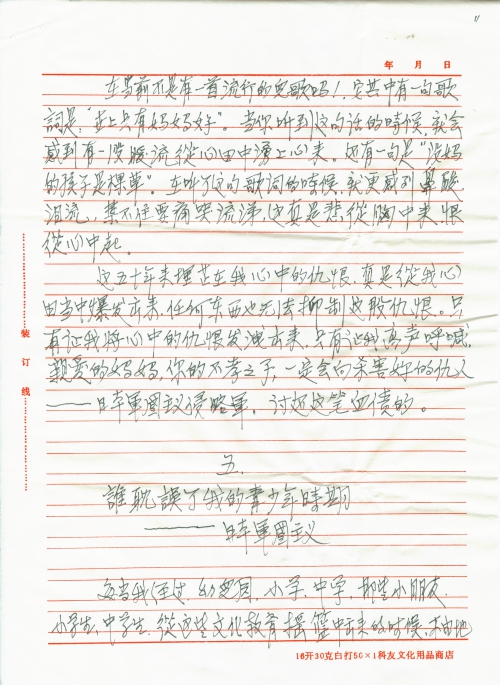 11
年 月 日
在当前不是有一首流行的儿歌吗！它其中有一句歌
詞是，"世上只有妈妈好"。当你听到这句话的時候，就会
感到有一股暖流從心田中湧上心来。还有一句是"没妈
的孩子是棵草"。在听了这句歌词的時候，我更感到鼻酸
泪流，禁不住要痛哭流涕，这真是悲從胸中来，恨
從心中起。
这五十年来埋在我心中的仇恨，真是從我心
田当中爆发出来，任何东西也无法抑制这股仇恨。只
有让我将心中的仇恨发洩出来，只有让我高声呼喊，
親爱的妈妈，你的不孝之子，一定会向杀害妳的仇人
——日本軍國主义侵略軍，讨还这笔血债的。
装订线
五.
誰耽誤了我的青少年時期
——日本軍國主义
每当我经过，幼兒园，小学，中学，那些小朋友，
小学生，中学生，從这些文化教育摇篮中出来的時候，
16开30克白打50×1科友文化用品商店